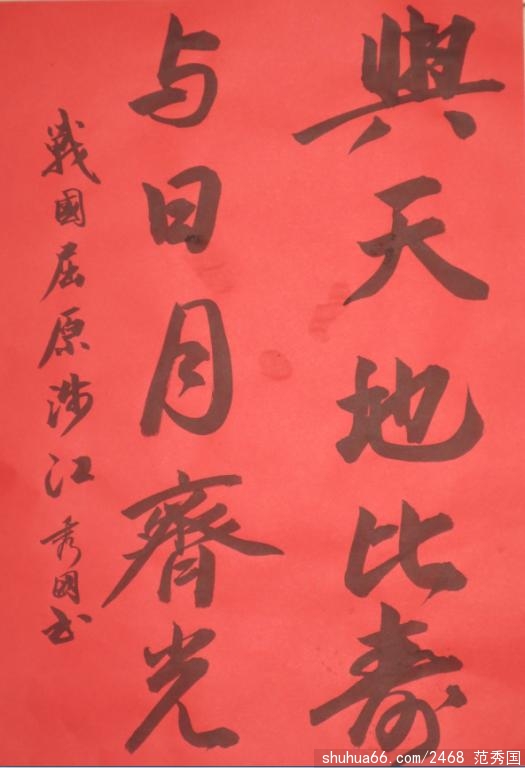 與天地比寿
与日月齊光
戰國屈原涉江 秀国书
shuhua66.com/2468 范秀国